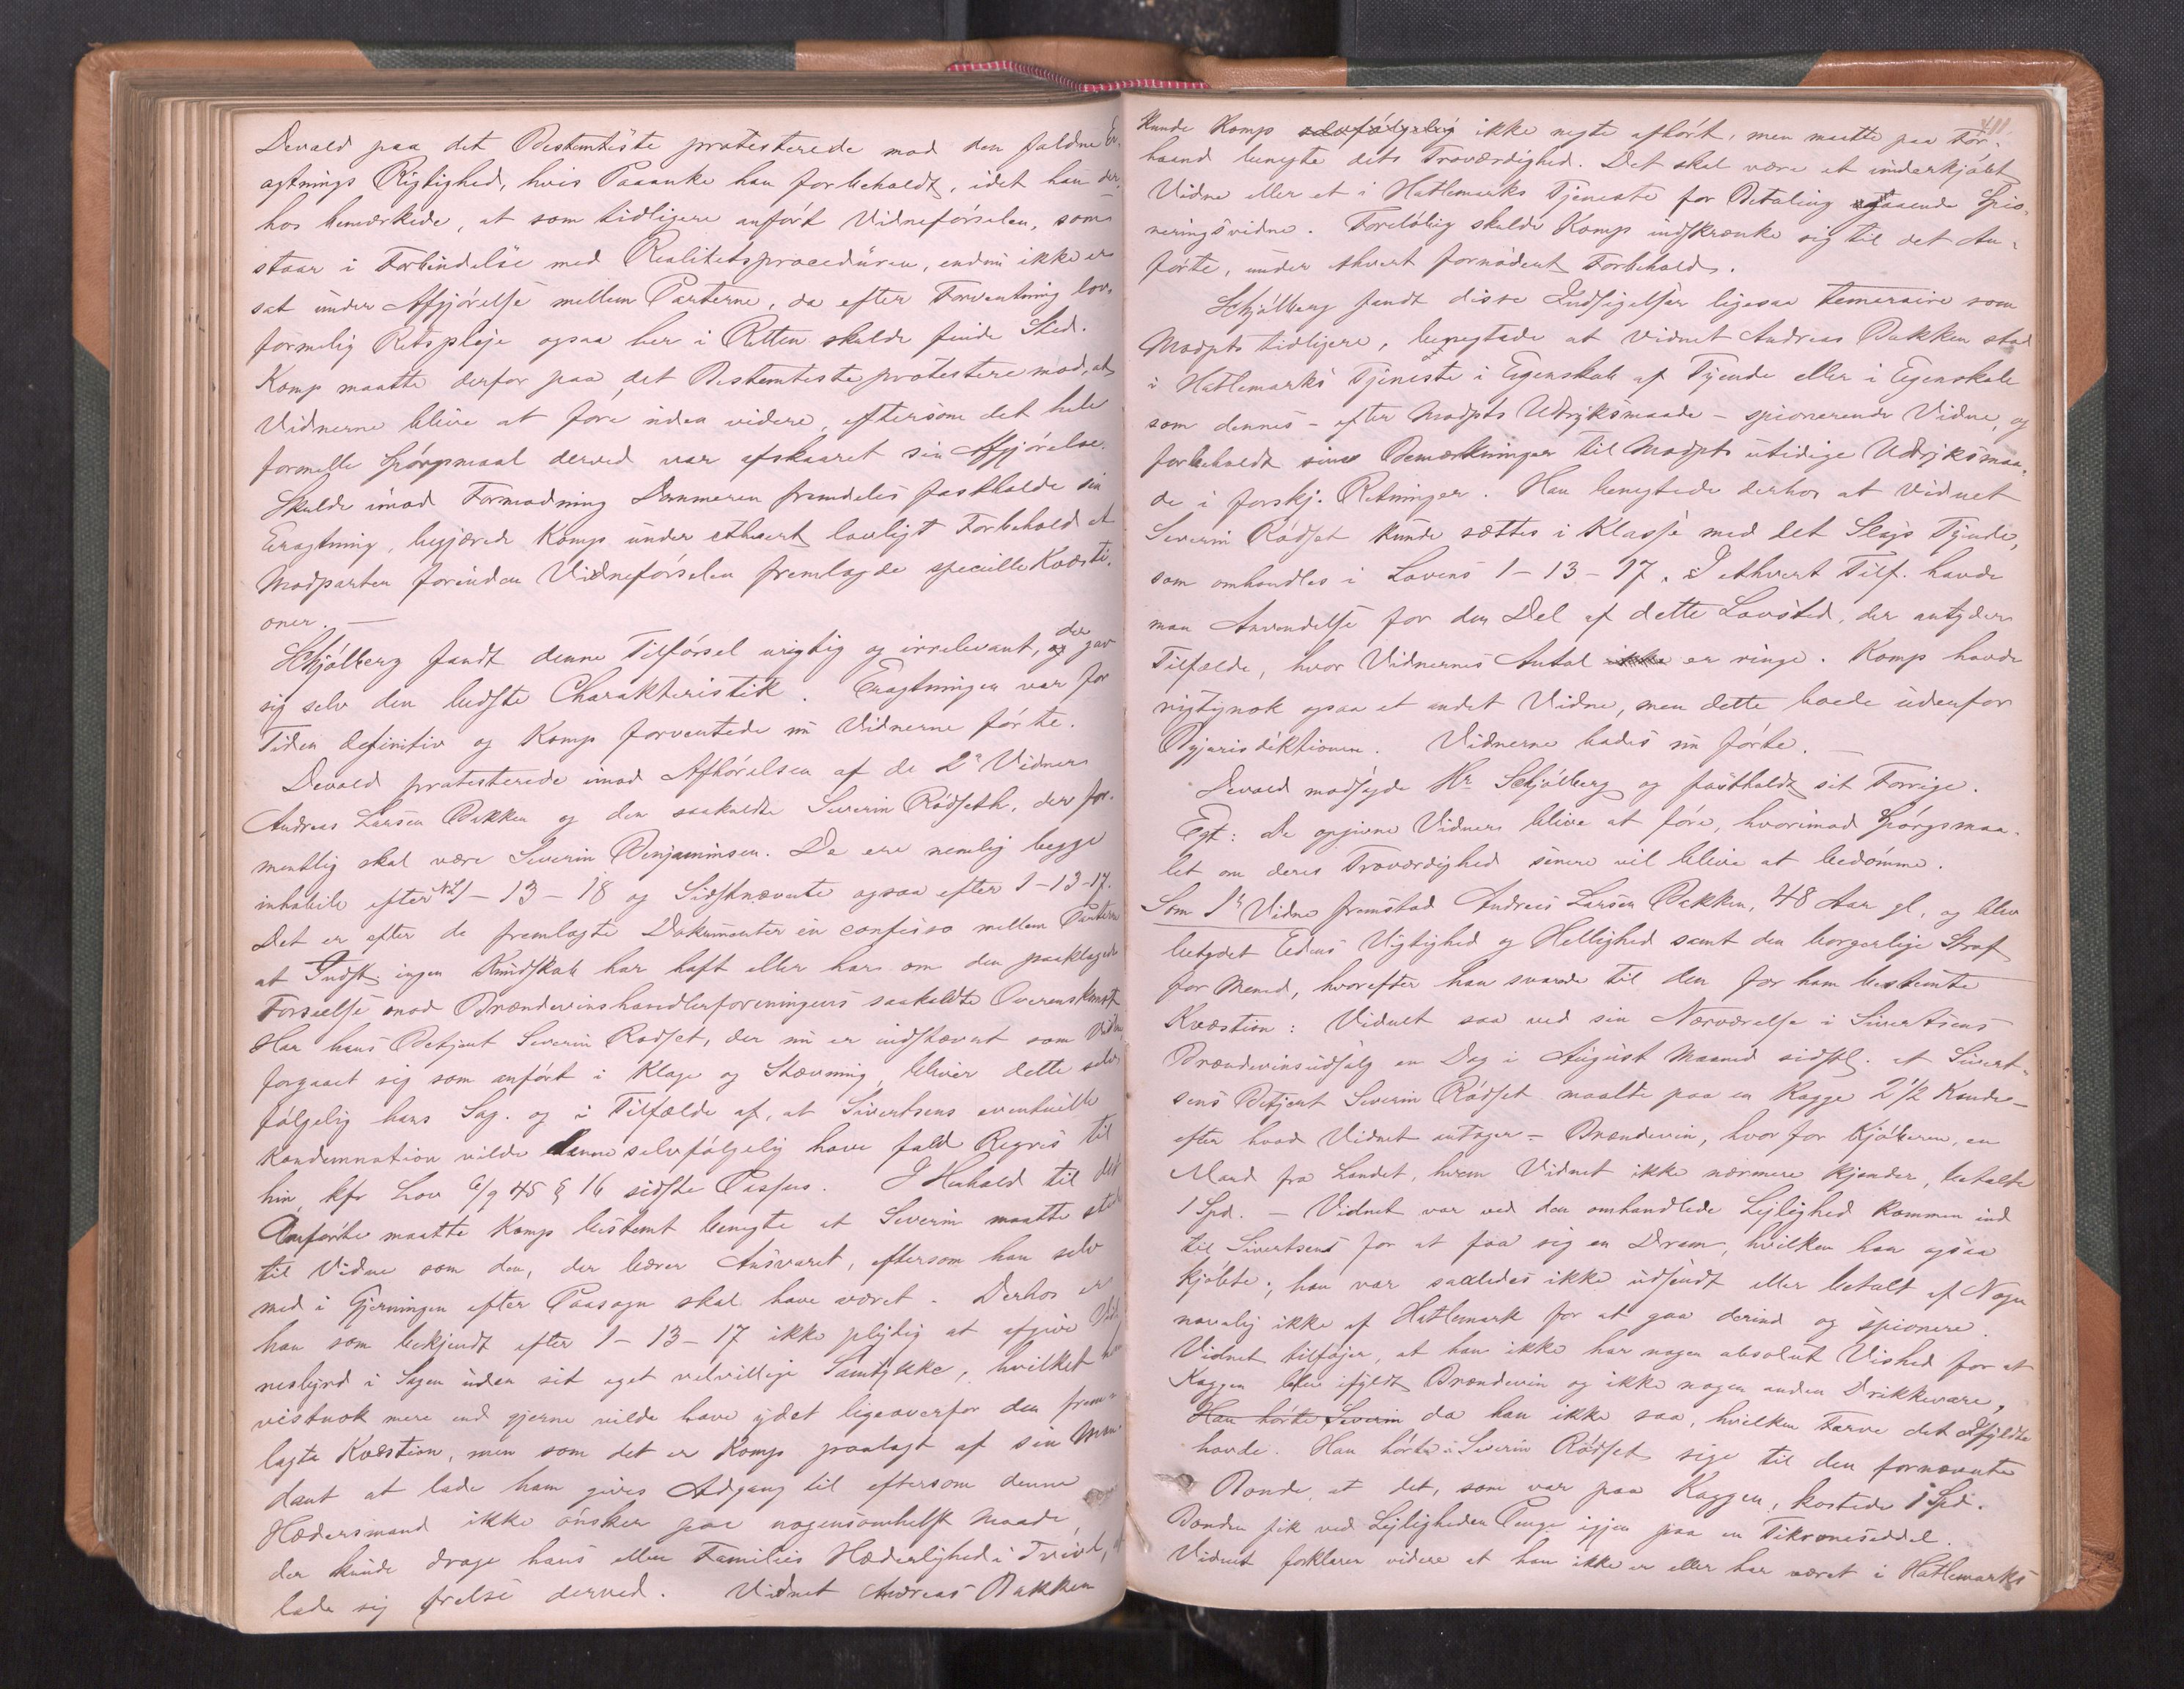 Devold paa det Bestemteste protesterede mod den faldne Er-
agtnings Rigtighed, hvis Paaanke han forbeholdt, idet han der-
hos bemærkede, at som tidligere anført Vidneførselen, som
staar i Forbindelse med Realitetsproceduren, endnu ikke er
sat under Afgjørelse mellem Parterne, da efter Forventning lov-
formelig Retspleje ogsaa her i Retten skulde finde Sted.
Komp maatte derfor paa det Bestemteste protestere mod, at
Vidnerne blive at føre uden videre, eftersom det hele
formelle Spørgsmaal derved var afskaaret sin Afgjørelse.
Skulde imod Formodning Dommeren fremdeles fastholde sin
Eragtning, begjærede Komp under ethvert lovligt Forbehold at
Modparten forinden Vidneførselen fremlagde specielle Kvæsti-
oner. —
Schjølberg fandt denne Tilførsel urigtig og irrelevant, og der gav
sig selv den bedste Charakteristik. Eragtningen var for
Tiden definitiv og Komp forventede nu Vidnerne førte.
Devold protesterede imod Afhørelsen af de 2de Vidner
Andreas Larsen Bakken og den saakaldte Severin Rødseth, der for-
mentlig skal være Severin Benjaminsen. De ere nemlig begge
inhabile efter NL 1-13-18 og Sidstnævnte ogsaa efter 1-13-17.
Det er efter de fremlagte Dokumenter in confesso mellem Parterne
at Indst. ingen Kundskab har haft eller har om den paaklagede
Forseelse mod Brændevinshandlerforeningens saakaldte Overenskomst
Har hans Betjent Severin Rødset, der nu er indstævnt som Vidne
forgaaet sig som anført i Klage og Stævning, bliver dette selv-
følgelig hans Sag. og i Tilfælde af, at Sivertsens eventuelle
Kondemnation vilde denne selvfølgelig have fuld Regres til
hin, kfr Lov 6/9 45 § 16 sidste Passus. I Henhold til det
Anførte maatte Komp bestemt benegte at Severin maatte stede
til Vidne som den, der bærer Ansvaret, eftersom han selv
med i Gjerningen efter Paasagn skal have været. Derhos er
han som bekjendt efter 1-13-17 ikke pligtig at afgive Vid-
nesbyrd i Sagen uden sit eget velvillige Samtykke, hvilket han
vistnok mere end gjerne vilde have ydet ligeoverfor den frem-
lagte Kvæstion, men som det er Komp paalagt af sin Man-
dant at lade ham gives Adgang til eftersom denne
Hædersmand ikke ønsker paa nogensomhelst Maade,
der kunde drage hans eller Families Hæderlighed i Tvivl, at
lade sig frelse derved. Vidnet Andreas Bakken
411.
kunde Komp selvfølgelig ikke negte afhørt, men maatte paa For-
haand benegte dets Troværdighed. Det skal være et underkjøbt
Vidne eller et i Hatlemarks Tjeneste for Betaling gaaende Spio-
neringsvidne. Foreløbig skulde Komp indskrænke sig til det An-
førte, under ethvert fornødent Forbehold.
Schjølberg fandt disse Indsigelser ligesaa temeraire som
Modpts tidligere, benegtede at Vidnet Andreas Bakken stod
i Hatlemarks Tjeneste i Egenskab af Tyende eller i Egenskab
som dennes – efter Modpts Udtryksmaade – spionerende Vidne, og
forbeholdt sine Bemærkninger til Modpts utidige Udtryksmaa-
de i forskj. Retninger. Han benegtede derhos at Vidnet
Severin Rødset kunde sættes i Klasse med det Slags Tyende,
som omhandles i Lovens 1-13-17. I ethvert Tilf. havde
man Anvendelse for den Del af dette Lovsted, der antyder
Tilfælde, hvor Vidnernes Antal ikke er ringe. Komp havde
rigtignok ogsaa et andet Vidne, men dette boede udenfor
Byjurisdiktionen. Vidnerne bades nu førte. —
Devold modsagde Hr Schjølberg og fastholdt sit Forrige.
Egt: De opgivne Vidner blive at føre, hvorimod Spørgsmaa-
let om deres Troværdighed senere vil blive at bedømme.
Som 1ste Vidne fremstod Andreas Larsen Bakken, 48 Aar gl, og blev
betydet Edens Vigtighed og Hellighed samt den borgerlige Straf
for Mened, hvorefter han svarede til den for ham bestemte
Kvæstion: Vidnet saa ved sin Nærværelse i Sivertsens
Brændevinsudsalg en Dag i August Maaned sidstl. at Sivert-
sens Betjent Severin Rødset maalte paa en Kagge 2 1/2 Kande –
efter hvad Vidnet antager – Brændevin, hvorfor Kjøberen, en
Mand fra Landet, hvem Vidnet ikke nærmere kjender, betalte
1 Spd. – Vidnet var ved den omhandlede Lejlighed kommen ind
til Sivertsens for at faa sig en Dram, hvilken han ogsaa
kjøbte; han var saaledes ikke udsendt eller betalt af Nogen
navnlig ikke af Hatlemark for at gaa derind og spionere.
Vidnet tilføjer, at han ikke har nogen absolut Vished for at
Kaggen blev ifyldt Brændevin og ikke nogen anden Drikkevare,
Han hørte Severin da han ikke saa, hvilken Farve det Ifyldte
havde. Han hørte Severin Rødset sige til den fornævnte
Bonde, at det, som var paa Kaggen, kostede 1 Spd.
Bonden fik ved Lejligheden Penge igjen paa en Tikroneseddel.
Vidnet forklarer videre at han ikke er eller har været i Hatlemarks